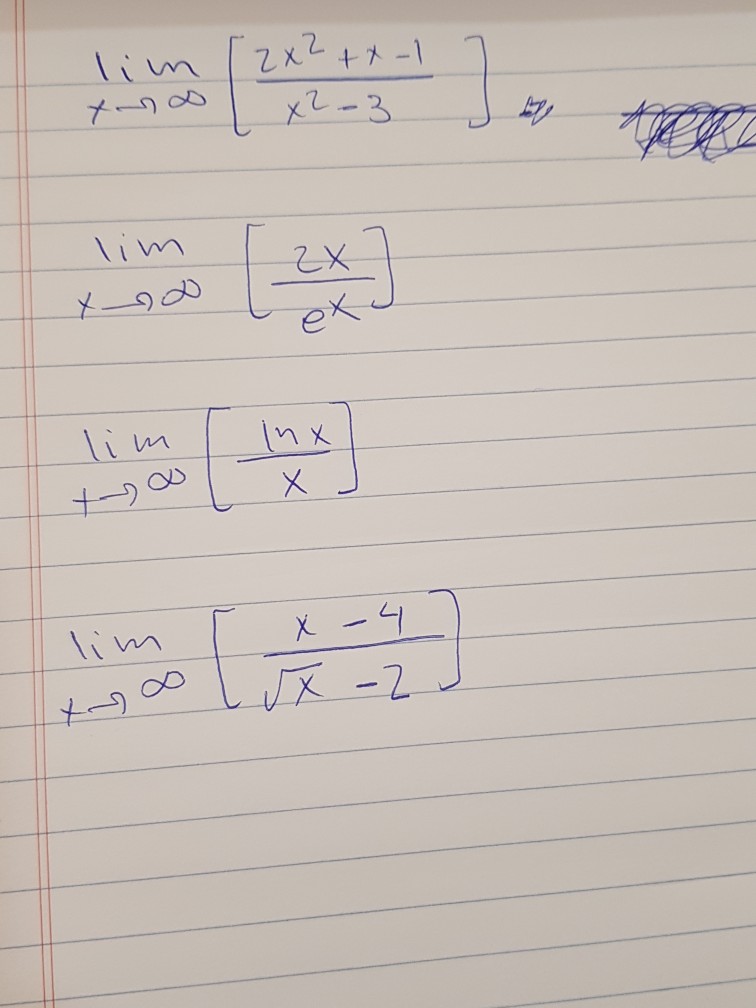 lim x→∞ [ (2x² + x - 1) / (x² - 3) ]
lim x→∞ [ 2x / eˣ ]
lim x→∞ [ ln x / x ]
lim x→∞ [ (x - 4) / (√x - 2) ]